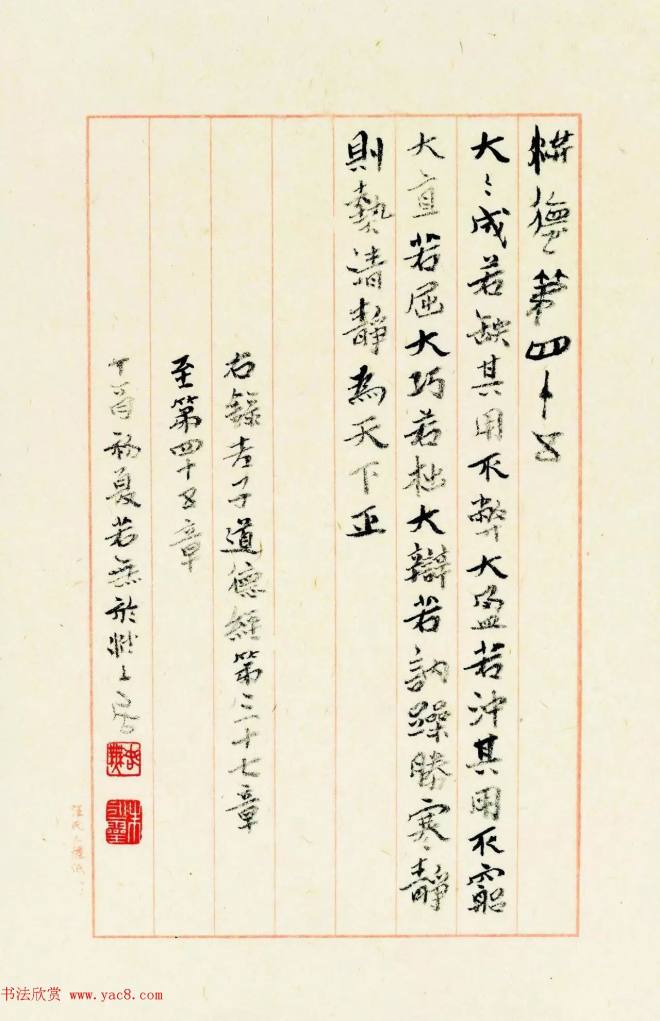 洪德第四十五
大〻成若缺其用不弊大盈若沖其用不窮
大直若屈大巧若拙大辯若訥躁勝寒〻靜
則熱清靜為天下正
右錄老子道德經第三十七章
至第四十五章
丁酉初夏若無於
书法欣赏 www.yac8.com